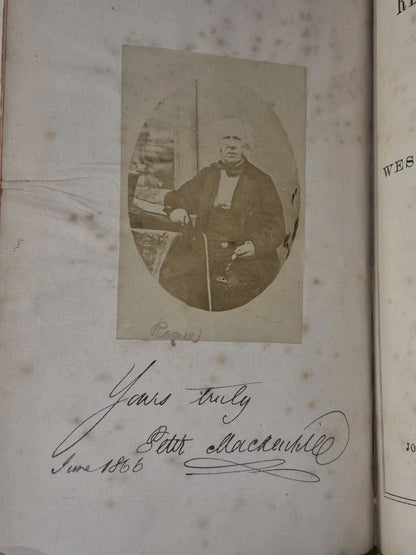 RE
WES
Yours truly
Peter Mackenzie
June 1866
JO